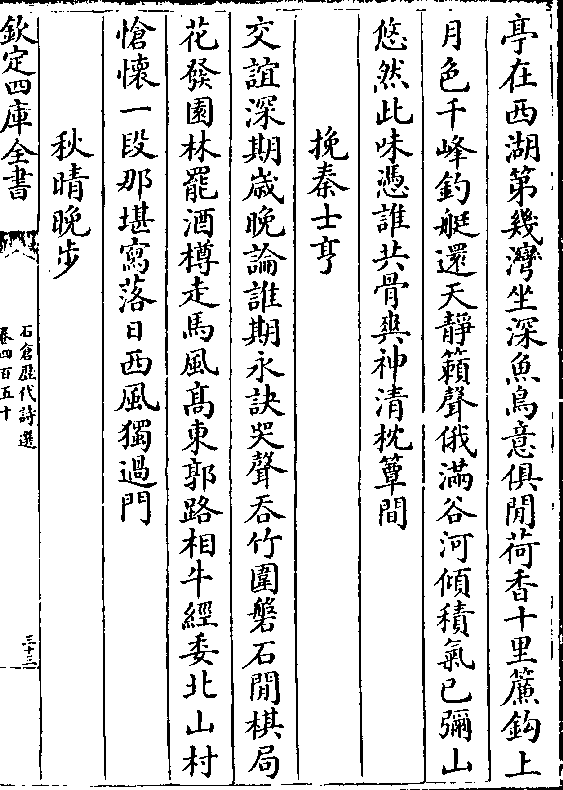 亭在西湖第幾灣坐深魚鳥意俱閒荷香十里簾鈎上
月色千峰釣艇還天靜籟聲俄滿谷河傾積氣已彌山
悠然此味憑誰共骨爽神清枕簟間
挽秦士亨
交誼深期歲晚論誰期永訣哭聲吞竹圍磐石閒棋局
花發園林罷酒樽走馬風髙東郭路相牛經委北山村
愴懷一段那堪寫落日西風獨過門
秋晴晚步
欽定四庫全書
石倉歷代詩選
卷四百五十
三十三